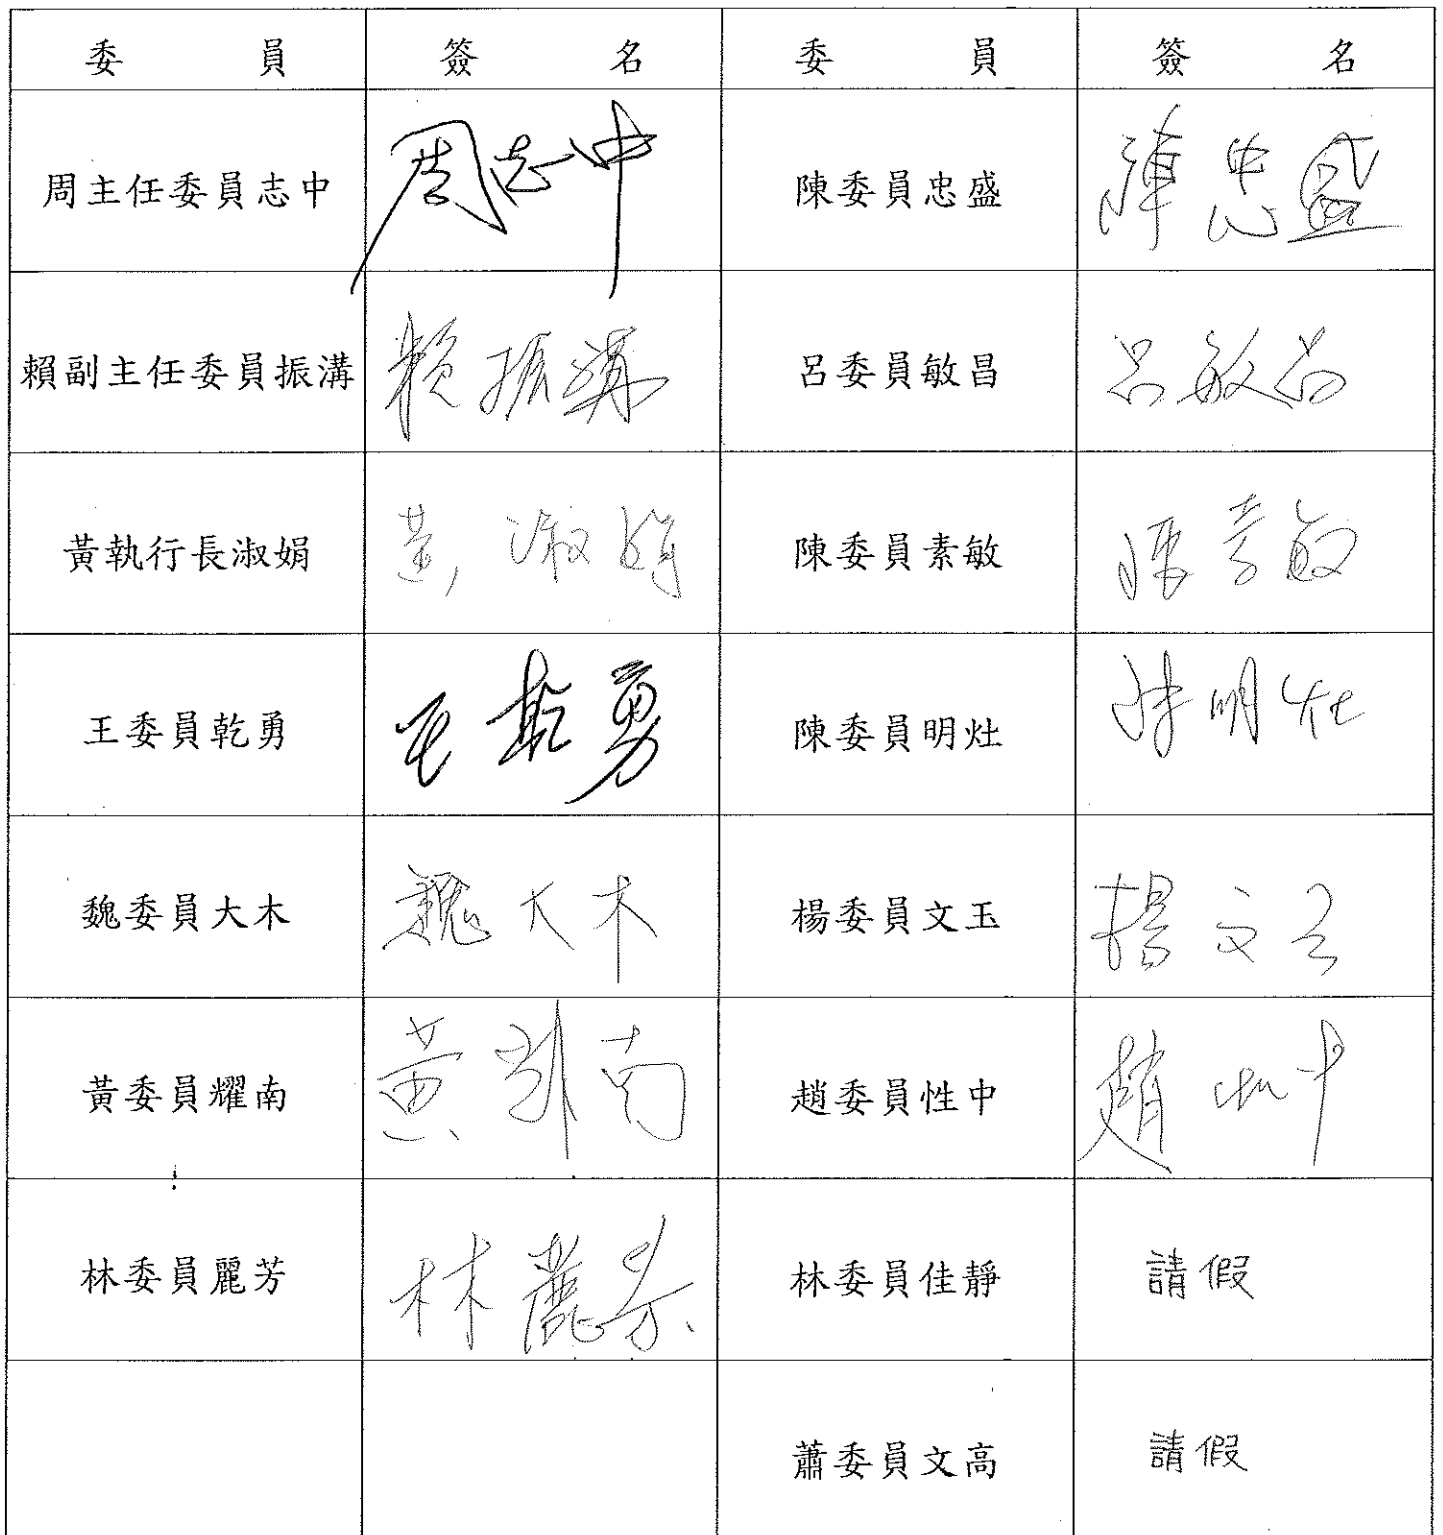 委員 簽名 委員 簽名
周主任委員志中 周志中 陳委員忠盛 陳忠盛
賴副主任委員振溝 賴振溝 呂委員敏昌 呂敏昌
黃執行長淑娟 黃淑娟 陳委員素敏 陳素敏
王委員乾勇 王乾勇 陳委員明灶 陳明灶
魏委員大木 魏大木 楊委員文玉 楊文玉
黃委員耀南 黃耀南 趙委員性中 趙性中
林委員麗芳 林麗芳 林委員佳靜 請假
蕭委員文高 請假